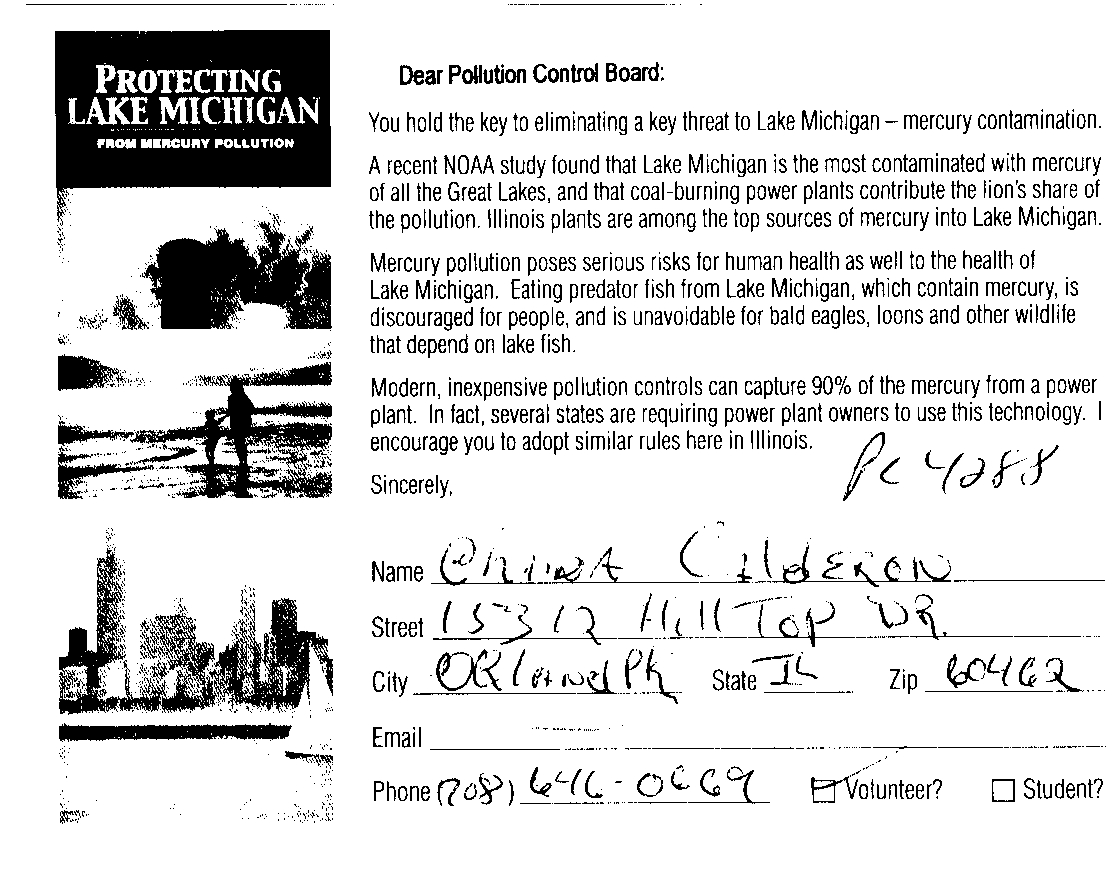 PROTECTING
LAKE MICHIGAN
FROM MERCURY POLLUTION
Dear Pollution Control Board:
You hold the key to eliminating a key threat to Lake Michigan – mercury contamination.
A recent NOAA study found that Lake Michigan is the most contaminated with mercury
of all the Great Lakes, and that coal-burning power plants contribute the lion's share of
the pollution. Illinois plants are among the top sources of mercury into Lake Michigan.
Mercury pollution poses serious risks for human health as well to the health of
Lake Michigan. Eating predator fish from Lake Michigan, which contain mercury, is
discouraged for people, and is unavoidable for bald eagles, loons and other wildlife
that depend on lake fish.
Modern, inexpensive pollution controls can capture 90% of the mercury from a power
plant. In fact, several states are requiring power plant owners to use this technology. I
encourage you to adopt similar rules here in Illinois.
PC 4288
Sincerely,
Name CALDERON
Street 15312 Hill Top DR.
City ORland Pk State IL Zip 60462
Email
Phone (708) 646-0669 Volunteer? Student?